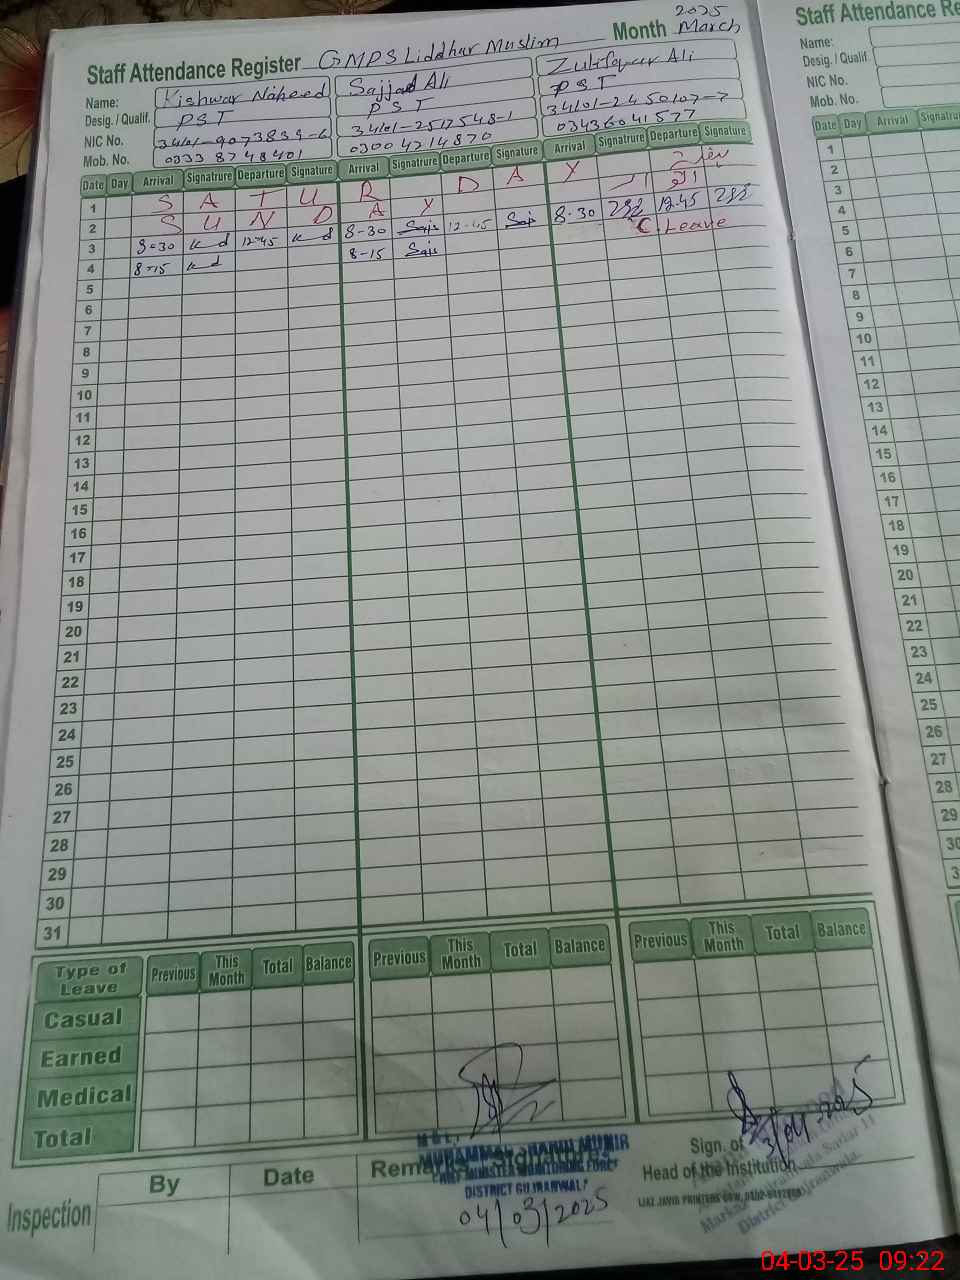 2025
Staff Attendance Register GMPS Liddhar Muslim Month March
Name: Kishwar Naheed Sajjad Ali Zulifqar Ali
Desig. / Qualif. PST PST PST
NIC No. 34101-9073839-6 34101-2517548-1 34101-2450107-7
Mob. No. 0333 8748401 03004214870 03436041577
Date Day Arrival Signature Departure Signature Arrival Signature Departure Signature Arrival Signature Departure Signature
1 S A T U R D A Y
2 S U N D A Y
3 8-30 kd 12-45 kd 8-30 Saj 12-45 Saj 8-30 12-45
4 8-15 kd 8-15 Saj C. Leave
5
6
7
8
9
10
11
12
13
14
15
16
17
18
19
20
21
22
23
24
25
26
27
28
29
30
31
Type of Leave Previous This Month Total Balance Previous This Month Total Balance Previous This Month Total Balance
Casual
Earned
Medical
Total
Inspection By Date Remarks Signatures
CHIEF MINISTER MONITORING FORCE
DISTRICT GUJRANWALA
04/03/2025
Sign. of
Head of the Institution
Staff Attendance Re
Name:
Desig. / Qualif.
NIC No.
Mob. No.
Date Day Arrival Signatur
1
2
3
4
5
6
7
8
9
10
11
12
13
14
15
16
17
18
19
20
21
22
23
24
25
26
27
28
29
30
3
04-03-25 09:22